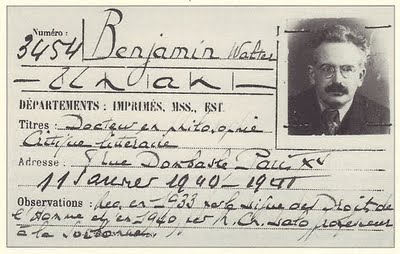 Numéro :
3454
Benjamin Walter
DÉPARTEMENTS : IMPRIMÉS, MSS., EST.
Titres : Docteur en philosophie
Critique littéraire
Adresse : rue Dombasle Paris XV
11 Janvier 1940 -
Observations : en 1933 par la Ligue des Droits de
l'Homme et en 1940 par professeur
à la Sorbonne